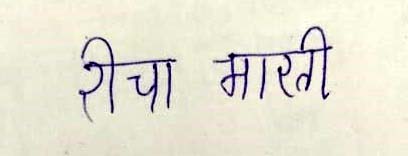 रीचा मारती